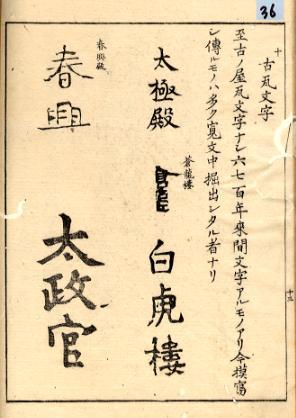 36
十
古瓦文字
至古ノ屋瓦文字ナシ六七百年來間文字アルモノアリ今摸寫
シ傳ルモノハ多ク寛文中掘出シタル者ナリ
太極殿
蒼龍樓
白虎樓
春興殿
春興
太政官
十三